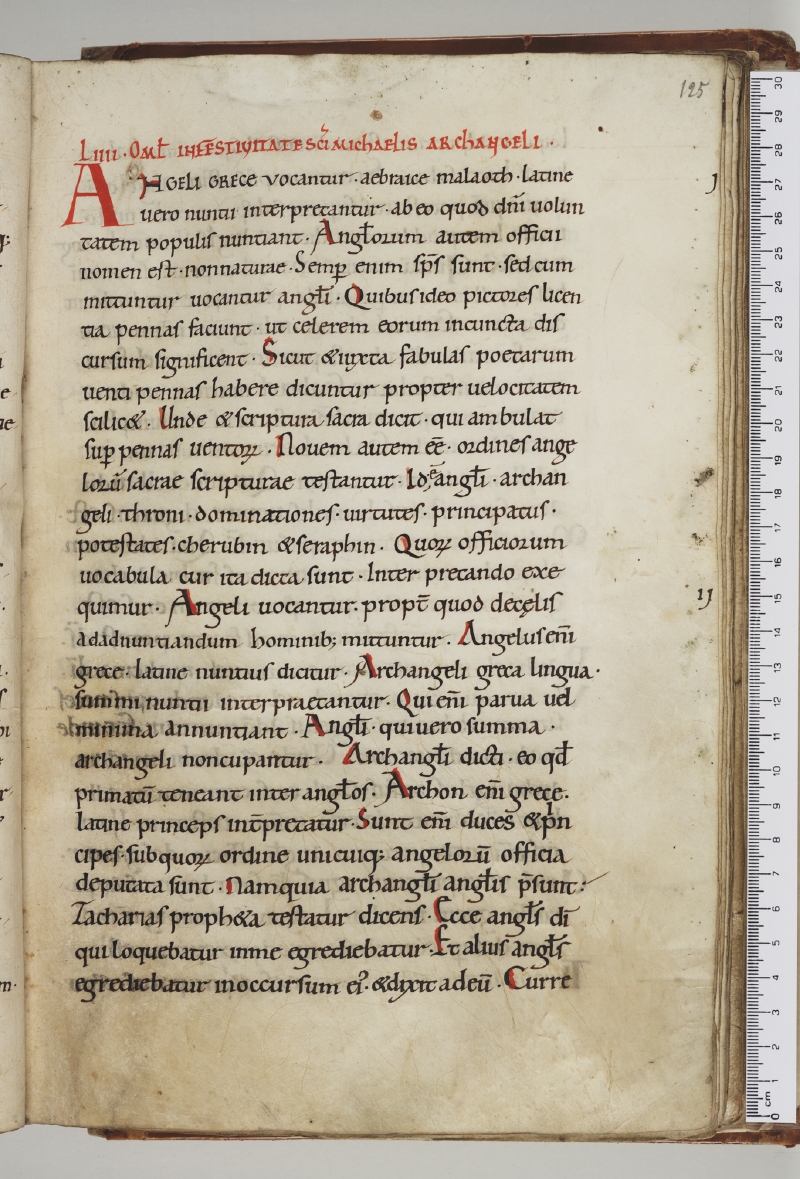 125
Liiii · Oml̄ IN FESTIVITATE SC̄I MICHAELIS ARCHANGELI ·
ANGELI GRECE vocantur · aebraice malaoth · latine
uero nuntii interpretantur · ab eo quod dn̄i uolun
tatem populis nuntiant · Angl̄orum autem officii
nomen est · non naturae · Semp̄ enim sp̄s sunt · sed cum
mittuntur uocantur angl̄i · Quibus ideo pictores licen
tia pennas faciunt · ut celerem eorum in cuncta dis
cursum significent · Sicut & iuxta fabulas poetarum
uenti pennas habere dicuntur propter uelocitatem
scilic& · Unde & scriptura sacra dicit · qui ambulat
sup̄ pennas uentoꝝ · Nouem autem eē · ordines ange
lorū sacrae scripturae testantur · Id ē angl̄i · archan
geli · throni · dominationes · uirtutes · principatus ·
potestates · cherubin & seraphin · Quoꝝ officiorum
uocabula cur ita dicta sunt · Inter pretando exe
quimur · Angeli uocantur · propt̄ quod de cęlis
ad adnuntiandum hominib; mittuntur · Angelus eni̅
grece · latine nuntius dicitur · Archangeli greca lingua ·
summi nuntii interpraetantur · Qui eni̅ parua uel
minima annuntiant · Angl̄i · qui uero summa ·
archangeli noncupantur · Archangl̄i dicti · eo qd̄
primatū teneant inter angl̄os · Archon eni̅ grece ·
latine princeps int̄pretatur · Sunt eni̅ duces & p̄n
cipes · sub quoꝝ ordine unicuiq; angelorū officia
deputata sunt · Nam quia archangl̄i angl̄is p̄sunt ·
Zacharias proph&a testatur dicens · Ecce angl̄s dī
qui loquebatur in me egrediebatur · Et alius angl̄s
egrediebatur in occursum ei' · & dixit ad eū · Curre